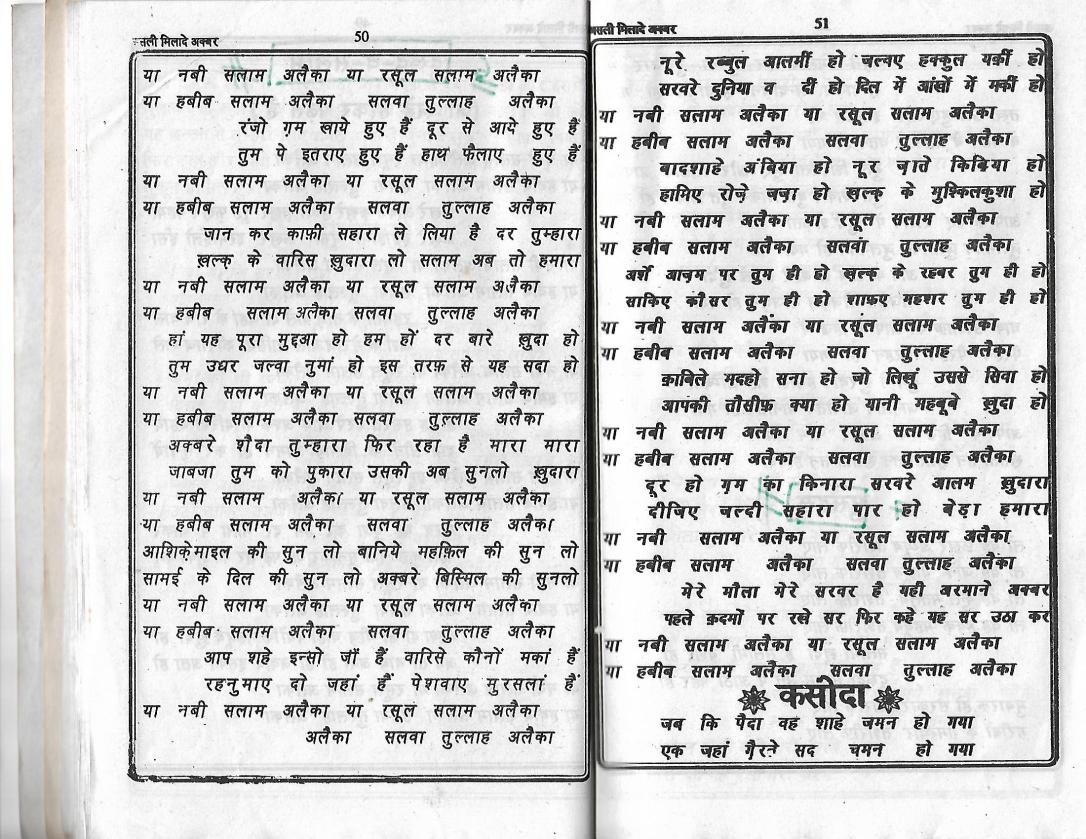 असली मिलादे अक्बर
50
या नबी सलाम अलैका या रसूल सलाम अलैका
या हबीब सलाम अलैका सलवा तुल्लाह अलैका
रंजो ग़म खाये हुए हैं दूर से आये हुए हैं
तुम पे इतराए हुए हैं हाथ फैलाए हुए हैं
या नबी सलाम अलैका या रसूल सलाम अलैका
या हबीब सलाम अलैका सलवा तुल्लाह अलैका
जान कर काफ़ी सहारा ले लिया है दर तुम्हारा
ख़ल्क़ के वारिस ख़ुदारा लो सलाम अब तो हमारा
या नबी सलाम अलैका या रसूल सलाम अलैका
या हबीब सलाम अलैका सलवा तुल्लाह अलैका
हां यह पूरा मुद्दआ हो हम हों दर बारे ख़ुदा हो
तुम उधर जल्वा नुमां हो इस तरफ़ से यह सदा हो
या नबी सलाम अलैका या रसूल सलाम अलैका
या हबीब सलाम अलैका सलवा तुल्लाह अलैका
अक्बरे शैदा तुम्हारा फिर रहा है मारा मारा
जाबजा तुम को पुकारा उसकी अब सुनलो ख़ुदारा
या नबी सलाम अलैका या रसूल सलाम अलैका
या हबीब सलाम अलैका सलवा तुल्लाह अलैका
आशिक़े माइल की सुन लो बानिये महफ़िल की सुन लो
सामई के दिल की सुन लो अक्बरे बिस्मिल की सुनलो
या नबी सलाम अलैका या रसूल सलाम अलैका
या हबीब सलाम अलैका सलवा तुल्लाह अलैका
आप शहे इन्सो जाँ हैं वारिसे कौनों मकां हैं
रहनुमाए दो जहां हैं पेशवाए मुरसलां हैं
या नबी सलाम अलैका या रसूल सलाम अलैका
अलैका सलवा तुल्लाह अलैका
असली मिलादे अक्बर
51
नूरे रब्बुल आलमीं हो जल्वए हक्कुल यक़ीं हो
सरवरे दुनिया व दीं हो दिल में आंखों में मकीं हो
या नबी सलाम अलैका या रसूल सलाम अलैका
या हबीब सलाम अलैका सलवा तुल्लाह अलैका
बादशाहे अंबिया हो नूर ज़ाते किबिया हो
हामिए रोज़े जज़ा हो ख़ल्क़ के मुश्किलकुशा हो
या नबी सलाम अलैका या रसूल सलाम अलैका
या हबीब सलाम अलैका सलवा तुल्लाह अलैका
अर्शे आज़म पर तुम ही हो ख़ल्क़ के रहबर तुम ही हो
साकिए कौसर तुम ही हो शाफ़ए महशर तुम ही हो
या नबी सलाम अलैका या रसूल सलाम अलैका
या हबीब सलाम अलैका सलवा तुल्लाह अलैका
क़ाबिले मदहो सना हो जो लिखूं उससे सिवा हो
आपकी तौसीफ़ क्या हो यानी महबूबे ख़ुदा हो
या नबी सलाम अलैका या रसूल सलाम अलैका
या हबीब सलाम अलैका सलवा तुल्लाह अलैका
दूर हो ग़म का किनारा सरवरे आलम ख़ुदारा
दीजिए जल्दी सहारा पार हो बेड़ा हमारा
या नबी सलाम अलैका या रसूल सलाम अलैका
या हबीब सलाम अलैका सलवा तुल्लाह अलैका
मेरे मौला मेरे सरवर है यही अरमाने अक्बर
पहले क़दमों पर रखे सर फिर कहे यह सर उठा कर
या नबी सलाम अलैका या रसूल सलाम अलैका
या हबीब सलाम अलैका सलवा तुल्लाह अलैका
कसीदा
जब कि पैदा वह शाहे ज़मन हो गया
एक जहां ग़ैरते सद चमन हो गया